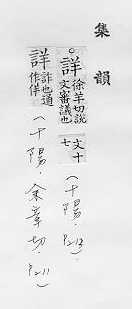 集韻
○詳徐羊切說文審議也文十七(十陽.P213)
詳詐也通作佯(十陽.余章切.P211)